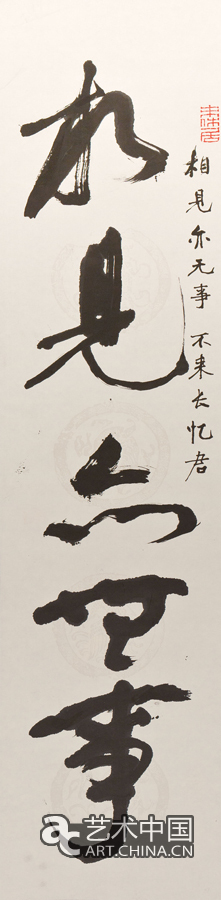 相見亦無事
相見亦无事 不来长忆君
艺术中国
ART.CHINA.CN